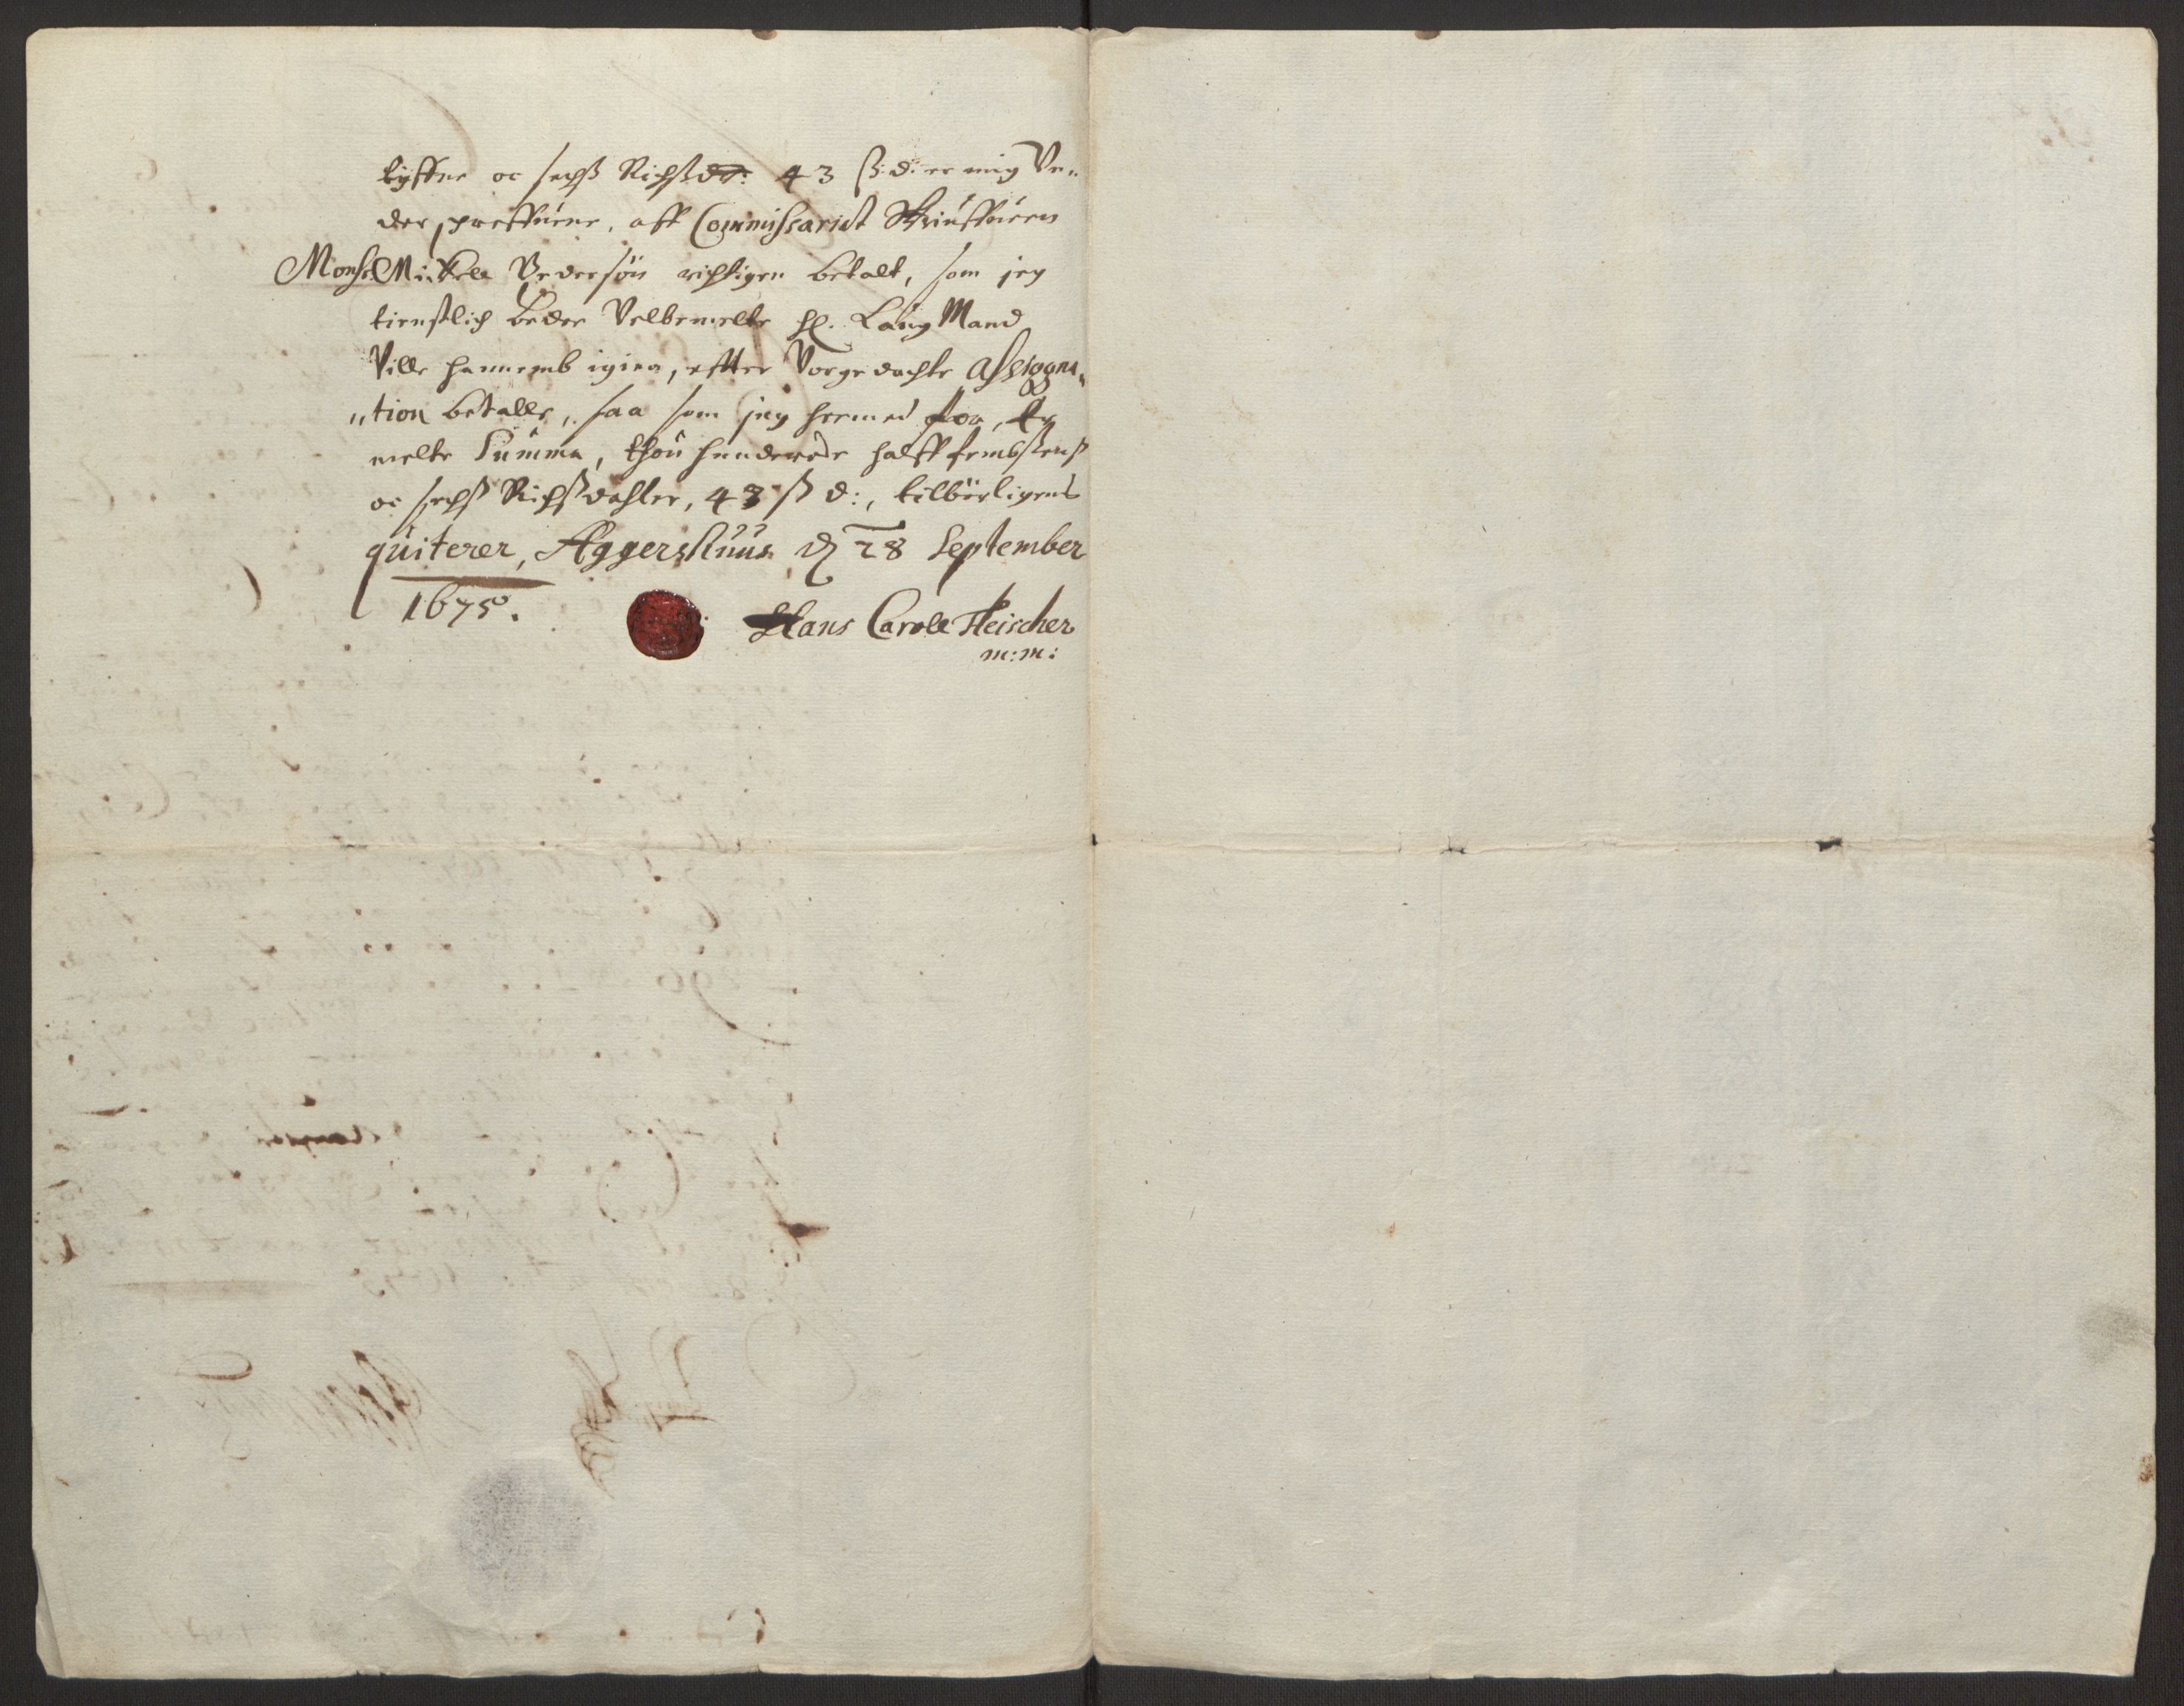 tyffue oc sechs Richsdr: 43 ß: d: er mig Un„
der schreffuene, aff Commissariat Skriuffueren
Monsr Mickell Pedersøn richtigen betalt, som jeg
tienstlich beder Velbemelte Hr. LaugMand
Ville hannemb igien, effter Vorgedachte Assigna„
„tion betalle, saa som jeg hermed for, be
melte Summa, thou hunderede halff fembsens
oc sechs Richsdahler, 43 ß d:, tilbörligens
quiterer, Aggershuus d 28 September
1675.
Hans Caroll Fleischer
m:m: